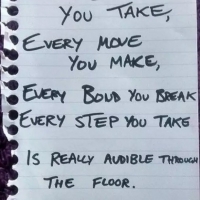 YOU TAKE,
EVERY MOVE
YOU MAKE,
EVERY BOUD YOU BREAK
EVERY STEP YOU TAKE
IS REALLY AUDIBLE THROUGH
THE FLOOR.